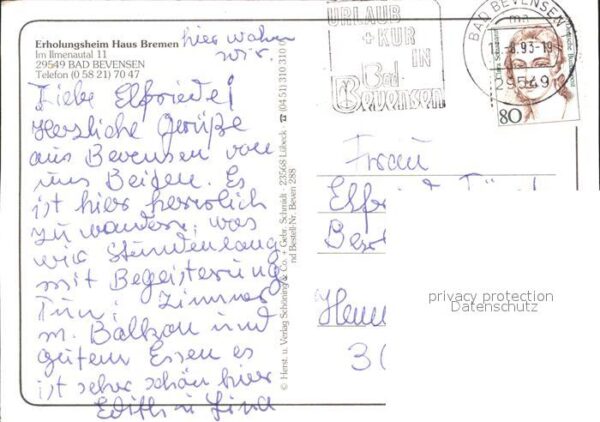 Erholungsheim Haus Bremen
Im Ilmenautal 11
29549 BAD BEVENSEN
Telefon (0 58 21) 70 47
hier wohnen
wir.
Liebe Elfriede!
Herzliche Grüße
aus Bevensen von
uns Beiden. Es
ist hier herrlich
zu wandern, was
wir stundenlang
mit Begeisterung
tun. Zimmer
m. Balkon und
gutem Essen es
ist sehr schön hier
Edith u.
© Herst. u. Verlag Schöning & Co. + Gebr. Schmidt · 23568 Lübeck · ☎ (04 51) 310 310
nd Bestell-Nr. Beven 288
URLAUB
+ KUR
IN
Bad
Bevensen
BAD BEVENSEN
ma
13.-8.93-19
29549
80
Frau
Elfr
Hann
3
privacy protection
Datenschutz